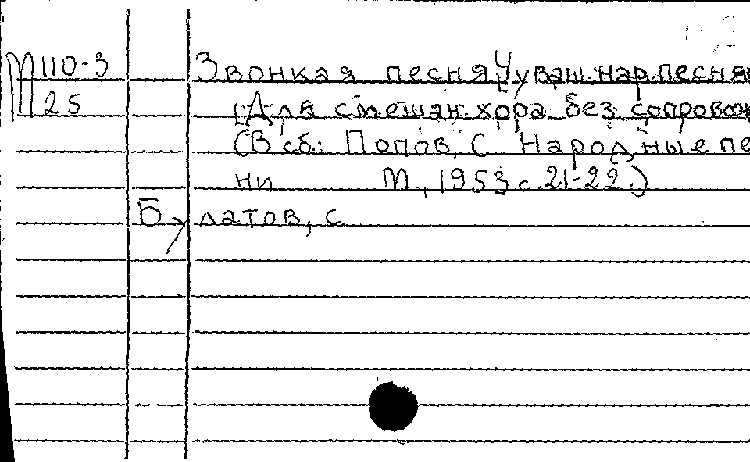 М110-3 Звонкая песня Чуваш. нар. песня
25 (Для смешан. хора без сопровож
(В сб.: Попов, С Народные пе
ни М, 1953 с. 21-22.)
Булатов, с